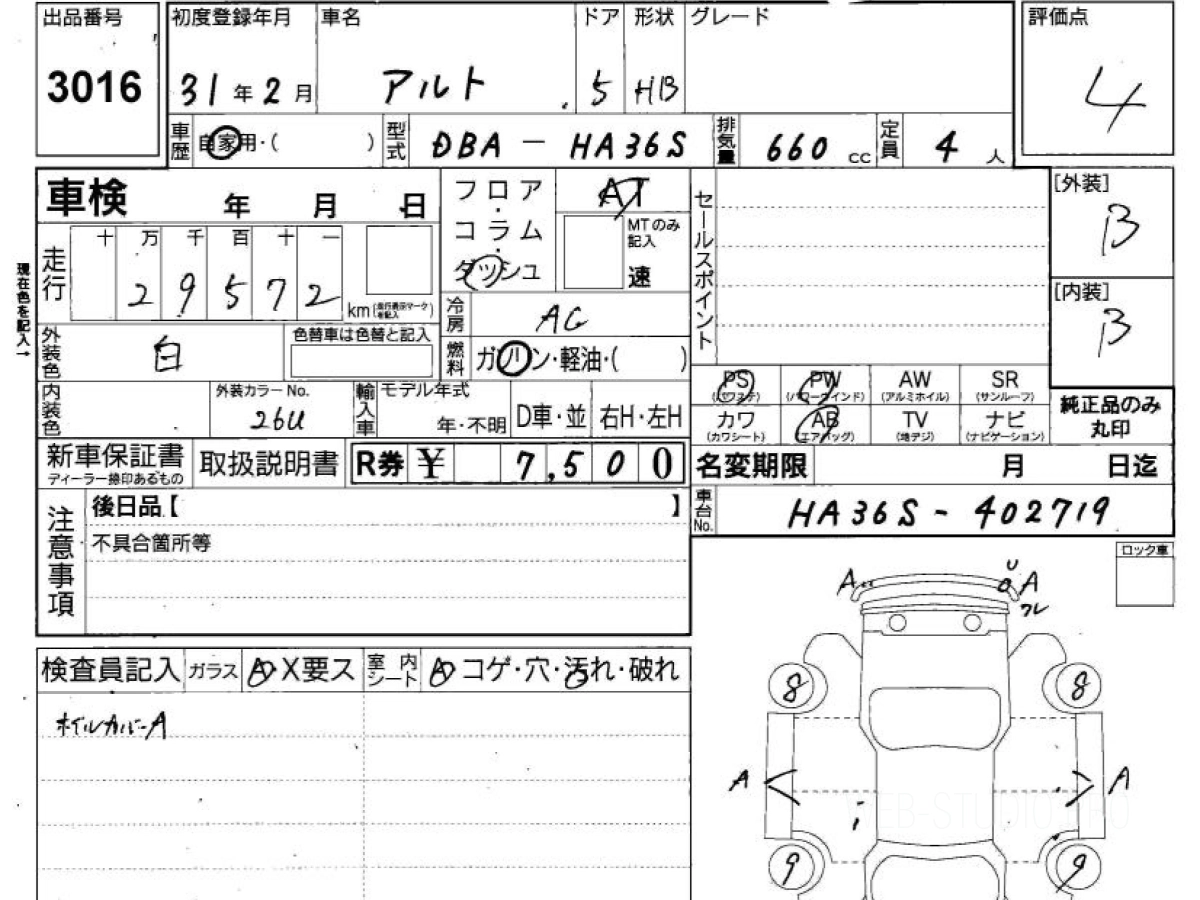 出品番号 初度登録年月 車名 ドア 形状 グレード 評価点
3016 31年2月 アルト 5 HB 4
車歴 自家用・( ) 型式 DBA - HA36S 排気量 660 cc 定員 4 人
車検 年 月 日
フロア・コラム・ダッシュ
AT
MTのみ記入
速
セールスポイント
[外装]
B
[内装]
B
現在色を記入→
走行 十 万 千 百 十 一
29572
km
冷房 AC
外装色 白 色替車は色替と記入
燃料 ガソリン・軽油・( )
内装色 外装カラーNo. 26U
輸入車 モデル年式 年・不明 D車・並 右H・左H
PS (パワステ) PW (パワーウインド) AW (アルミホイル) SR (サンルーフ)
カワ (カワシート) AB (エアバッグ) TV (地デジ) ナビ (ナビゲーション)
純正品のみ丸印
新車保証書 ディーラー捺印あるもの 取扱説明書 R券 ¥ 7,500
名変期限 月 日迄
車台No. HA36S - 402719
注意事項
後日品【 】
不具合箇所等
ロック車
A U A
フレ
検査員記入 ガラス A X要ス 室内シート A コゲ・穴・汚れ・破れ
ホイルカバーA
8 8
A A
WEB-STUDIO.PRO
9 9